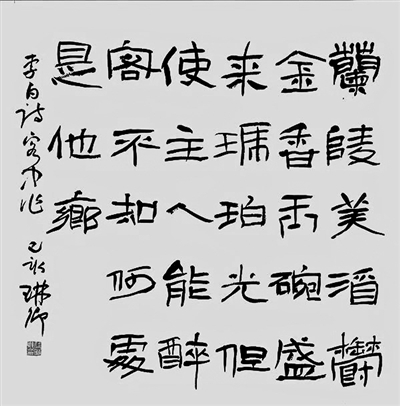 蘭陵美酒鬱
金香玉碗盛
来琥珀光但
使主人能醉
客不知何處
是他鄉
李白詩客中作